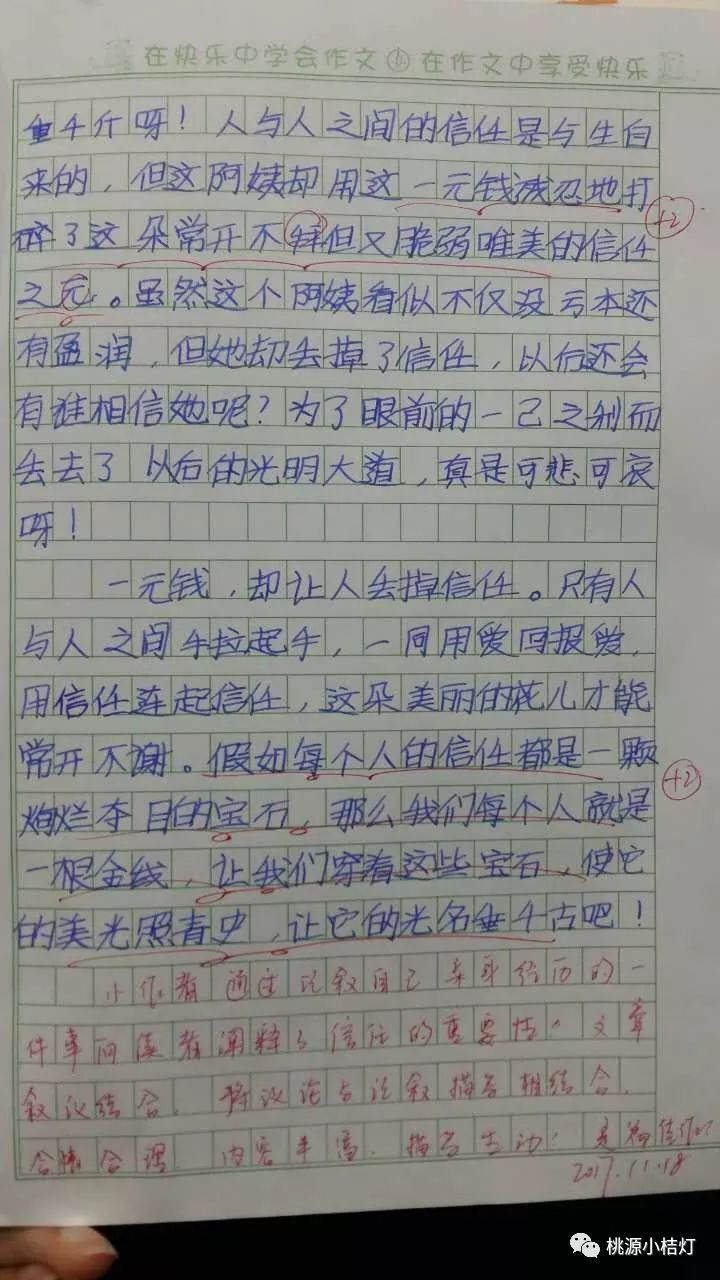 在快乐中学会作文④在作文中享受快乐
重千斤呀！人与人之间的信任是与生自
来的，但这阿姨却用这一元钱残忍地打
碎了这朵常开不但又脆弱唯美的信任
之元。虽然这个阿姨看似不仅没亏本还
+2
有盈润，但她却去掉了信任，以后还会
有谁相信她呢？为了眼前的一己之利而
丢去了以后的光明大道，真是可悲可哀
呀！
一元钱，却让人丢掉信任。只有人
与人之间手拉起手，一同用爱回报爱，
用信任连起信任，这朵美丽的花儿才能
常开不谢。假如每个人的信任都是一颗
绚烂夺目的宝石，那么我们每个人就是
+2
一根金线，让我们穿着这些宝石，使它
的美光照青史，让它的光名垂千古吧！
小作者通过记叙自己亲身经历的一
件事向读者阐释了信任的重要性！文章
叙议结合，将议论与记叙描写相结合，
合情合理，内容丰富，描写生动！是篇佳作
2017.11.18
桃源小桔灯